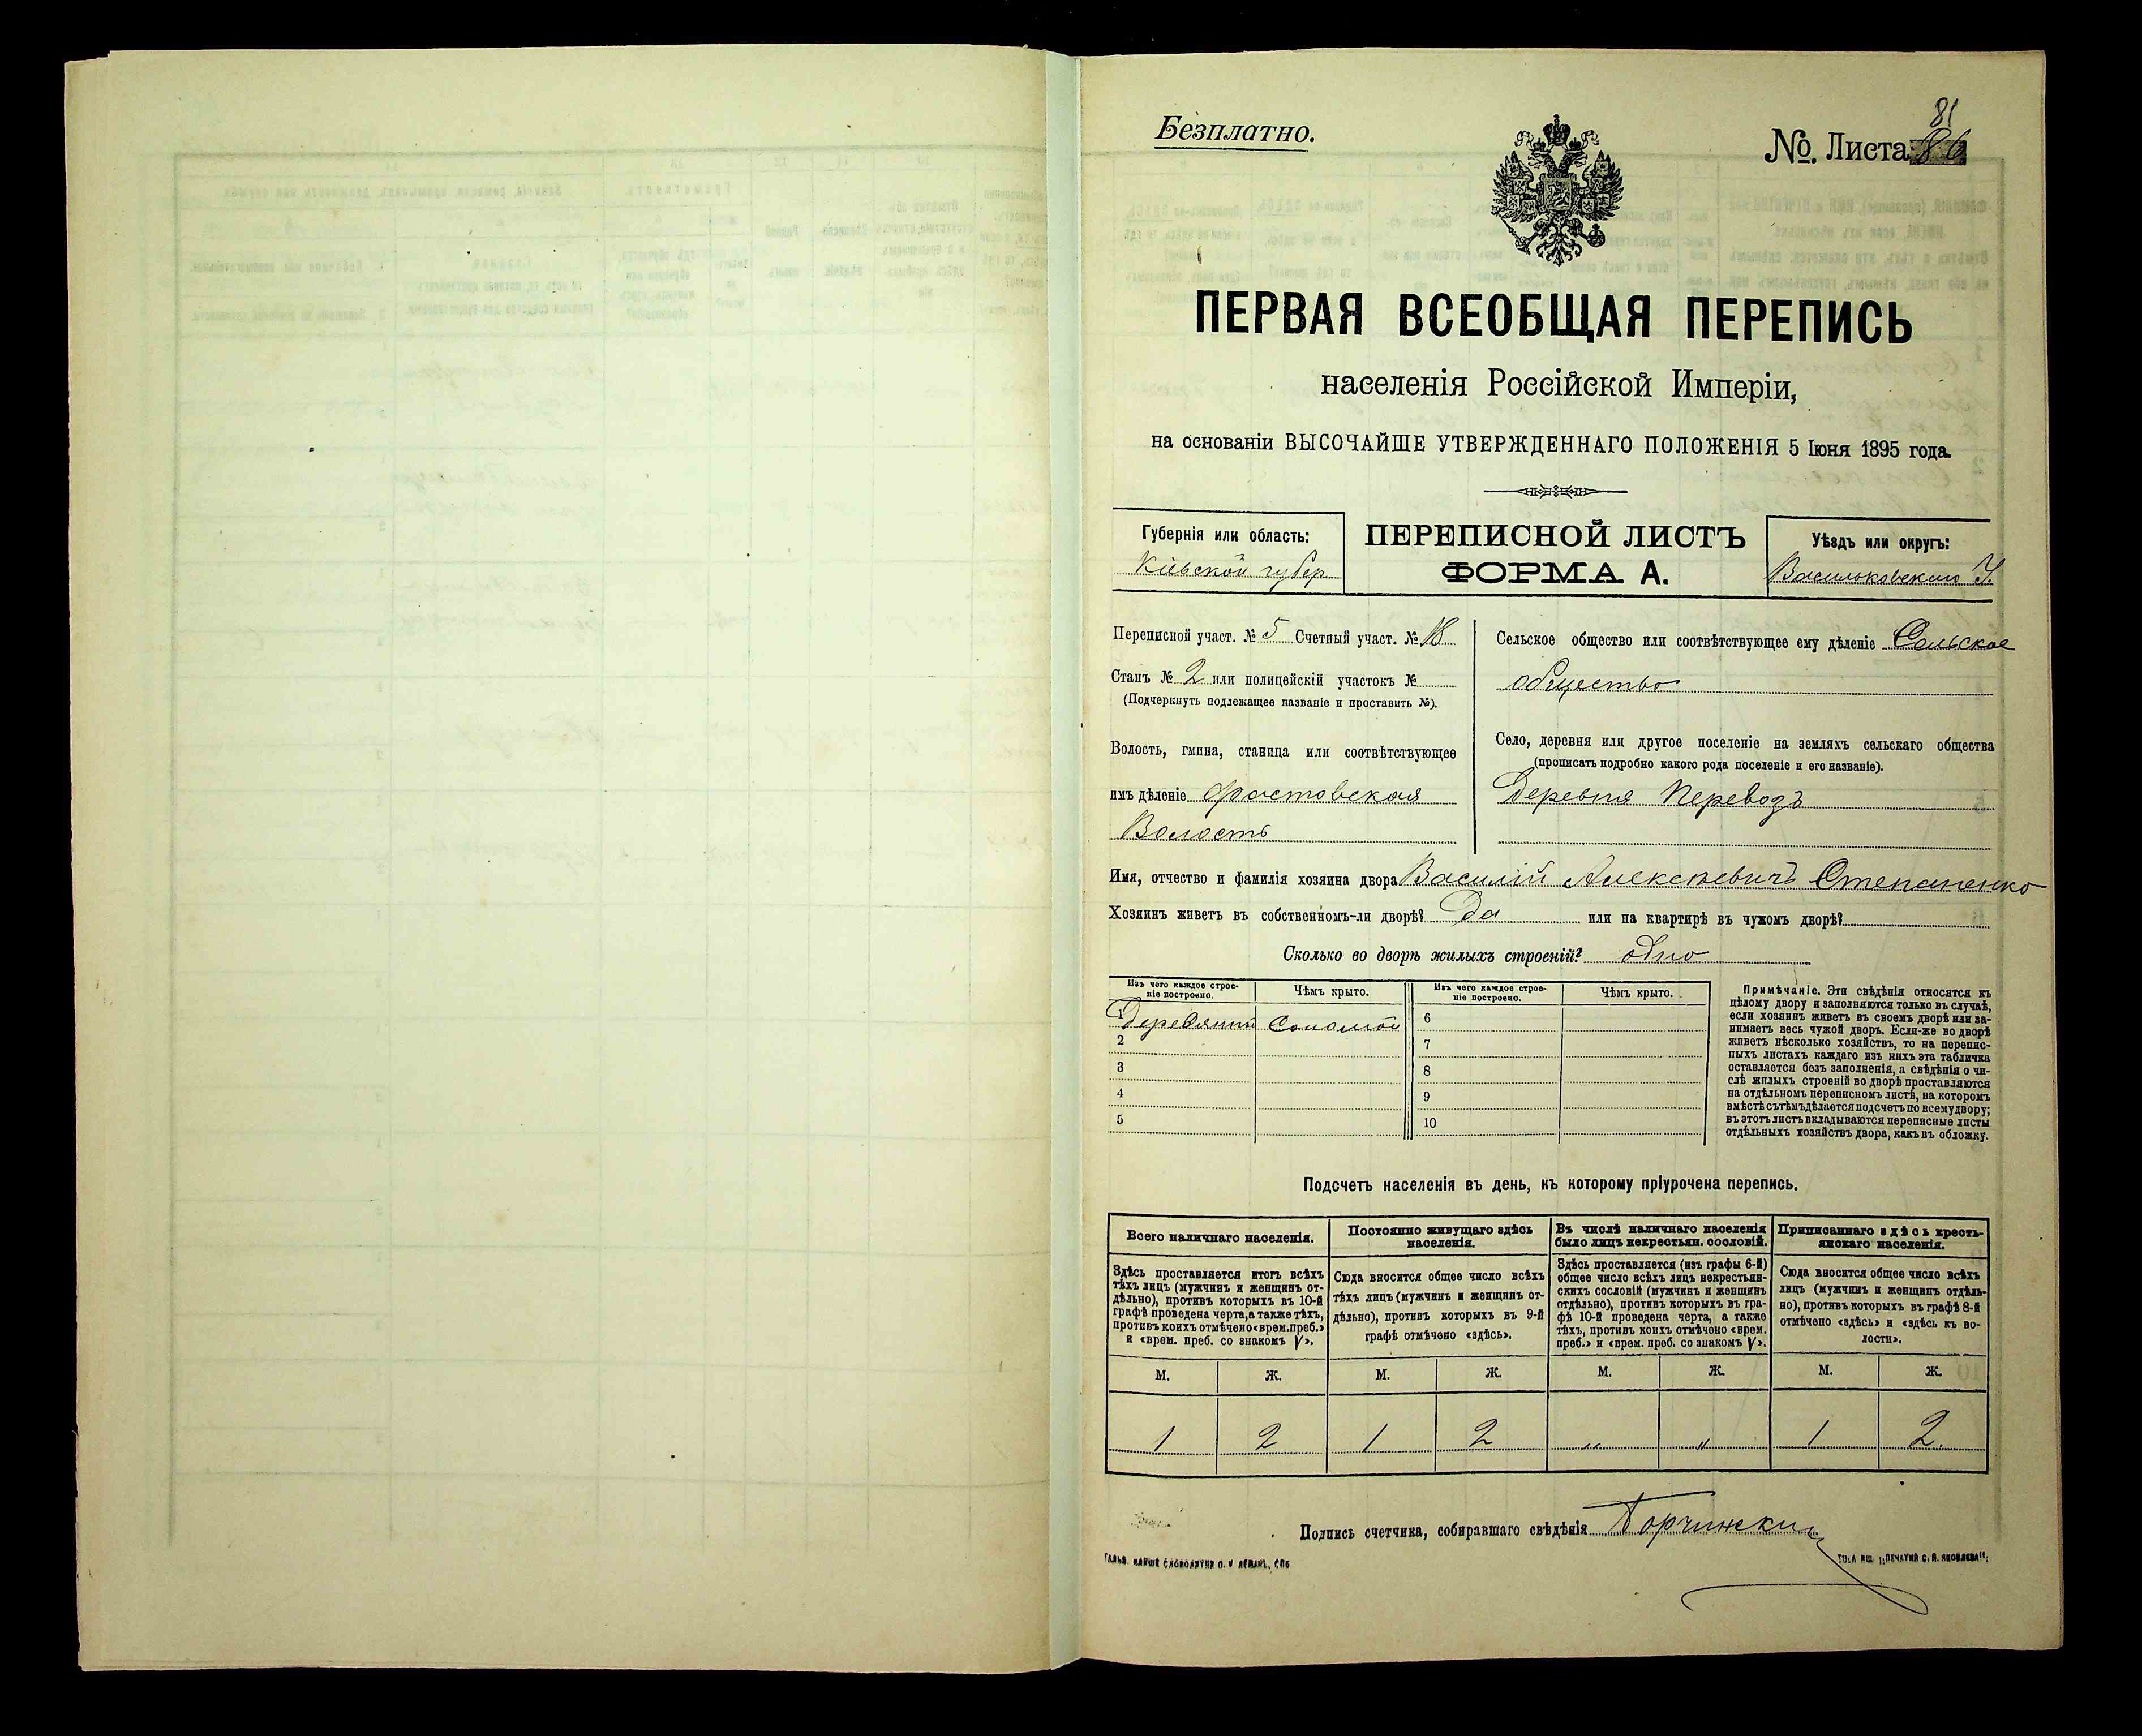 Безплатно.
81
№. Листа 86
ПЕРВАЯ ВСЕОБЩАЯ ПЕРЕПИСЬ
населенія Россійской Имперіи,
на основаніи ВЫСОЧАЙШЕ УТВЕРЖДЕННАГО ПОЛОЖЕНІЯ 5 Іюня 1895 года.
Губернія или область:
Кіевской губер
ПЕРЕПИСНОЙ ЛИСТЪ
ФОРМА А.
Уѣздъ или округъ:
Васильковскаго У.
Переписной участ. № 5 Счетный участ. № 18
Станъ № 2 или полицейскій участокъ №
(Подчеркнуть подлежащее названіе и проставить №).
Волость, гмина, станица или соотвѣтствующее
имъ дѣленіе Фастовская
Волость
Сельское общество или соотвѣтствующее ему дѣленіе Сельское
общество
Село, деревня или другое поселеніе на земляхъ сельскаго общества
(прописать подробно какого рода поселеніе и его названіе).
Деревня Перевозъ
Имя, отчество и фамилія хозяина двора Василій Алексѣевичъ Степаненко
Хозяинъ живетъ въ собственномъ-ли дворѣ? Да или на квартирѣ въ чужомъ дворѣ?
Сколько во дворѣ жилыхъ строеній? одно
Изъ чего каждое строе-
ніе построено.
Чѣмъ крыто.
Изъ чего каждое строе-
ніе построено.
Чѣмъ крыто.
1 Соломой 6
2 7
3 8
4 9
5 10
Примѣчаніе. Эти свѣдѣнія относятся къ
цѣлому двору и заполняются только въ случаѣ,
если хозяинъ живетъ въ своемъ дворѣ или за-
нимаетъ весь чужой дворъ. Если-же во дворѣ
живетъ нѣсколько хозяйствъ, то на перепис-
ныхъ листахъ каждаго изъ нихъ эта табличка
оставляется безъ заполненія, а свѣдѣнія о чи-
слѣ жилыхъ строеній во дворѣ проставляются
на отдѣльномъ переписномъ листѣ, на которомъ
вмѣстѣ съ тѣмъ дѣлается подсчетъ по всему двору;
въ этотъ листъ вкладываются переписные листы
отдѣльныхъ хозяйствъ двора, какъ въ обложку.
Подсчетъ населенія въ день, къ которому пріурочена перепись.
Всего наличнаго населенія.
Здѣсь проставляется итогъ всѣхъ
тѣхъ лицъ (мужчинъ и женщинъ от-
дѣльно), противъ которыхъ въ 10-й
графѣ проведена черта, а также тѣхъ,
противъ коихъ отмѣчено «врем. преб.»
и «врем. преб. со знакомъ V».
Постоянно живущаго здѣсь
населенія.
Сюда вносится общее число всѣхъ
тѣхъ лицъ (мужчинъ и женщинъ от-
дѣльно), противъ которыхъ въ 9-й
графѣ отмѣчено «здѣсь».
Въ числѣ наличнаго населенія
было лицъ некрестьян. сословій.
Здѣсь проставляется (изъ графы 6-й)
общее число всѣхъ лицъ некрестьян-
скихъ сословій (мужчинъ и женщинъ
отдѣльно), противъ которыхъ въ гра-
фѣ 10-й проведена черта, а также
тѣхъ, противъ коихъ отмѣчено «врем.
преб.» и «врем. преб. со знакомъ V».
Приписаннаго здѣсь кресть-
янскаго населенія.
Сюда вносится общее число всѣхъ
лицъ (мужчинъ и женщинъ отдѣль-
но), противъ которыхъ въ графѣ 8-й
отмѣчено «здѣсь» и «здѣсь къ во-
лости».
М. Ж. М. Ж. М. Ж. М. Ж.
1 2 1 2 „ „ 1 2.
Подпись счетчика, собиравшаго свѣдѣнія